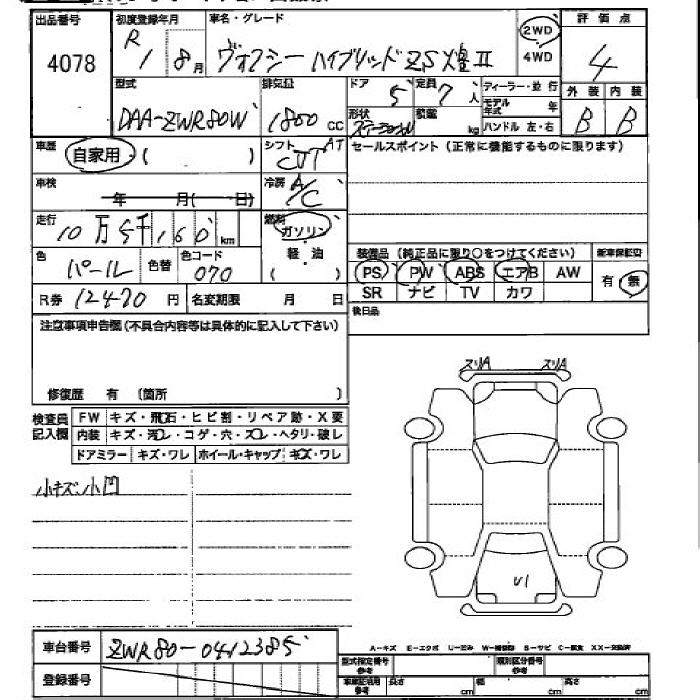 出品番号
4078
初度登録年月
R 1 8月
車名・グレード
ヴォクシー ハイブリッド ZS 煌 II
2WD
4WD
評価点
4
型式
DAA-ZWR80W
排気量
1800 cc
ドア
5
定員
7 人
ディーラー・並行
モデル年式 年
ハンドル 左・右
形状
積載 kg
外装
内装
B
B
車歴
自家用 ( )
シフト
AT
CVT
セールスポイント (正常に機能するものに限ります)
車検
年 月( 日)
冷房
A/C
走行
10万5千160 km
燃料
ガソリン
軽・油
( )
色
パール
色替
色コード
070
装備品 (純正品に限り○をつけてください)
新車保証书
PS PW ABS エアB AW
SR ナビ TV カワ
有・無
R券 12470 円
名変期限 月 日
後日品
注意事項申告欄 (不具合内容等は具体的に記入して下さい)
修復歴 有 (箇所 )
検査員記入欄
FW キズ・飛石・ヒビ割・リペア跡・X要
内装 キズ・汚レ・コゲ・穴・スレ・ヘタリ・破レ
ドアミラー キズ・ワレ ホイール・キャップ キズ・ワレ
小キズ、小凹
スリA スリA
U1
車台番号
ZWR80-0412385
登録番号
A-キズ E-エクボ U-凹み W-補修跡 S-サビ C-腐食 XX-交換済
型式指定番号
参考
類別区分番号
参考
車庫証明用
参考
長さ cm
幅 cm
高さ cm